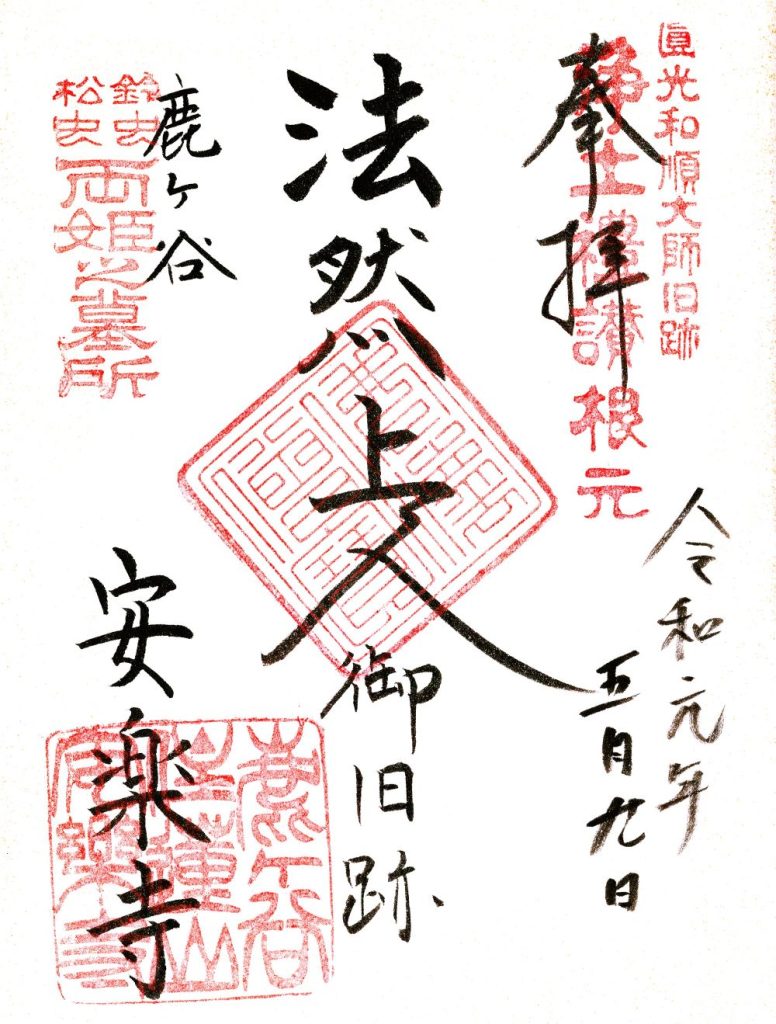 圓光和順大師旧跡
浄土禮讃根元
奉拝
令和元年
五月九日
法然上人
御旧跡
鹿ヶ谷
鈴虫
松虫
両姫之墓所
安楽寺
鹿ケ谷
住蓮山
安樂寺